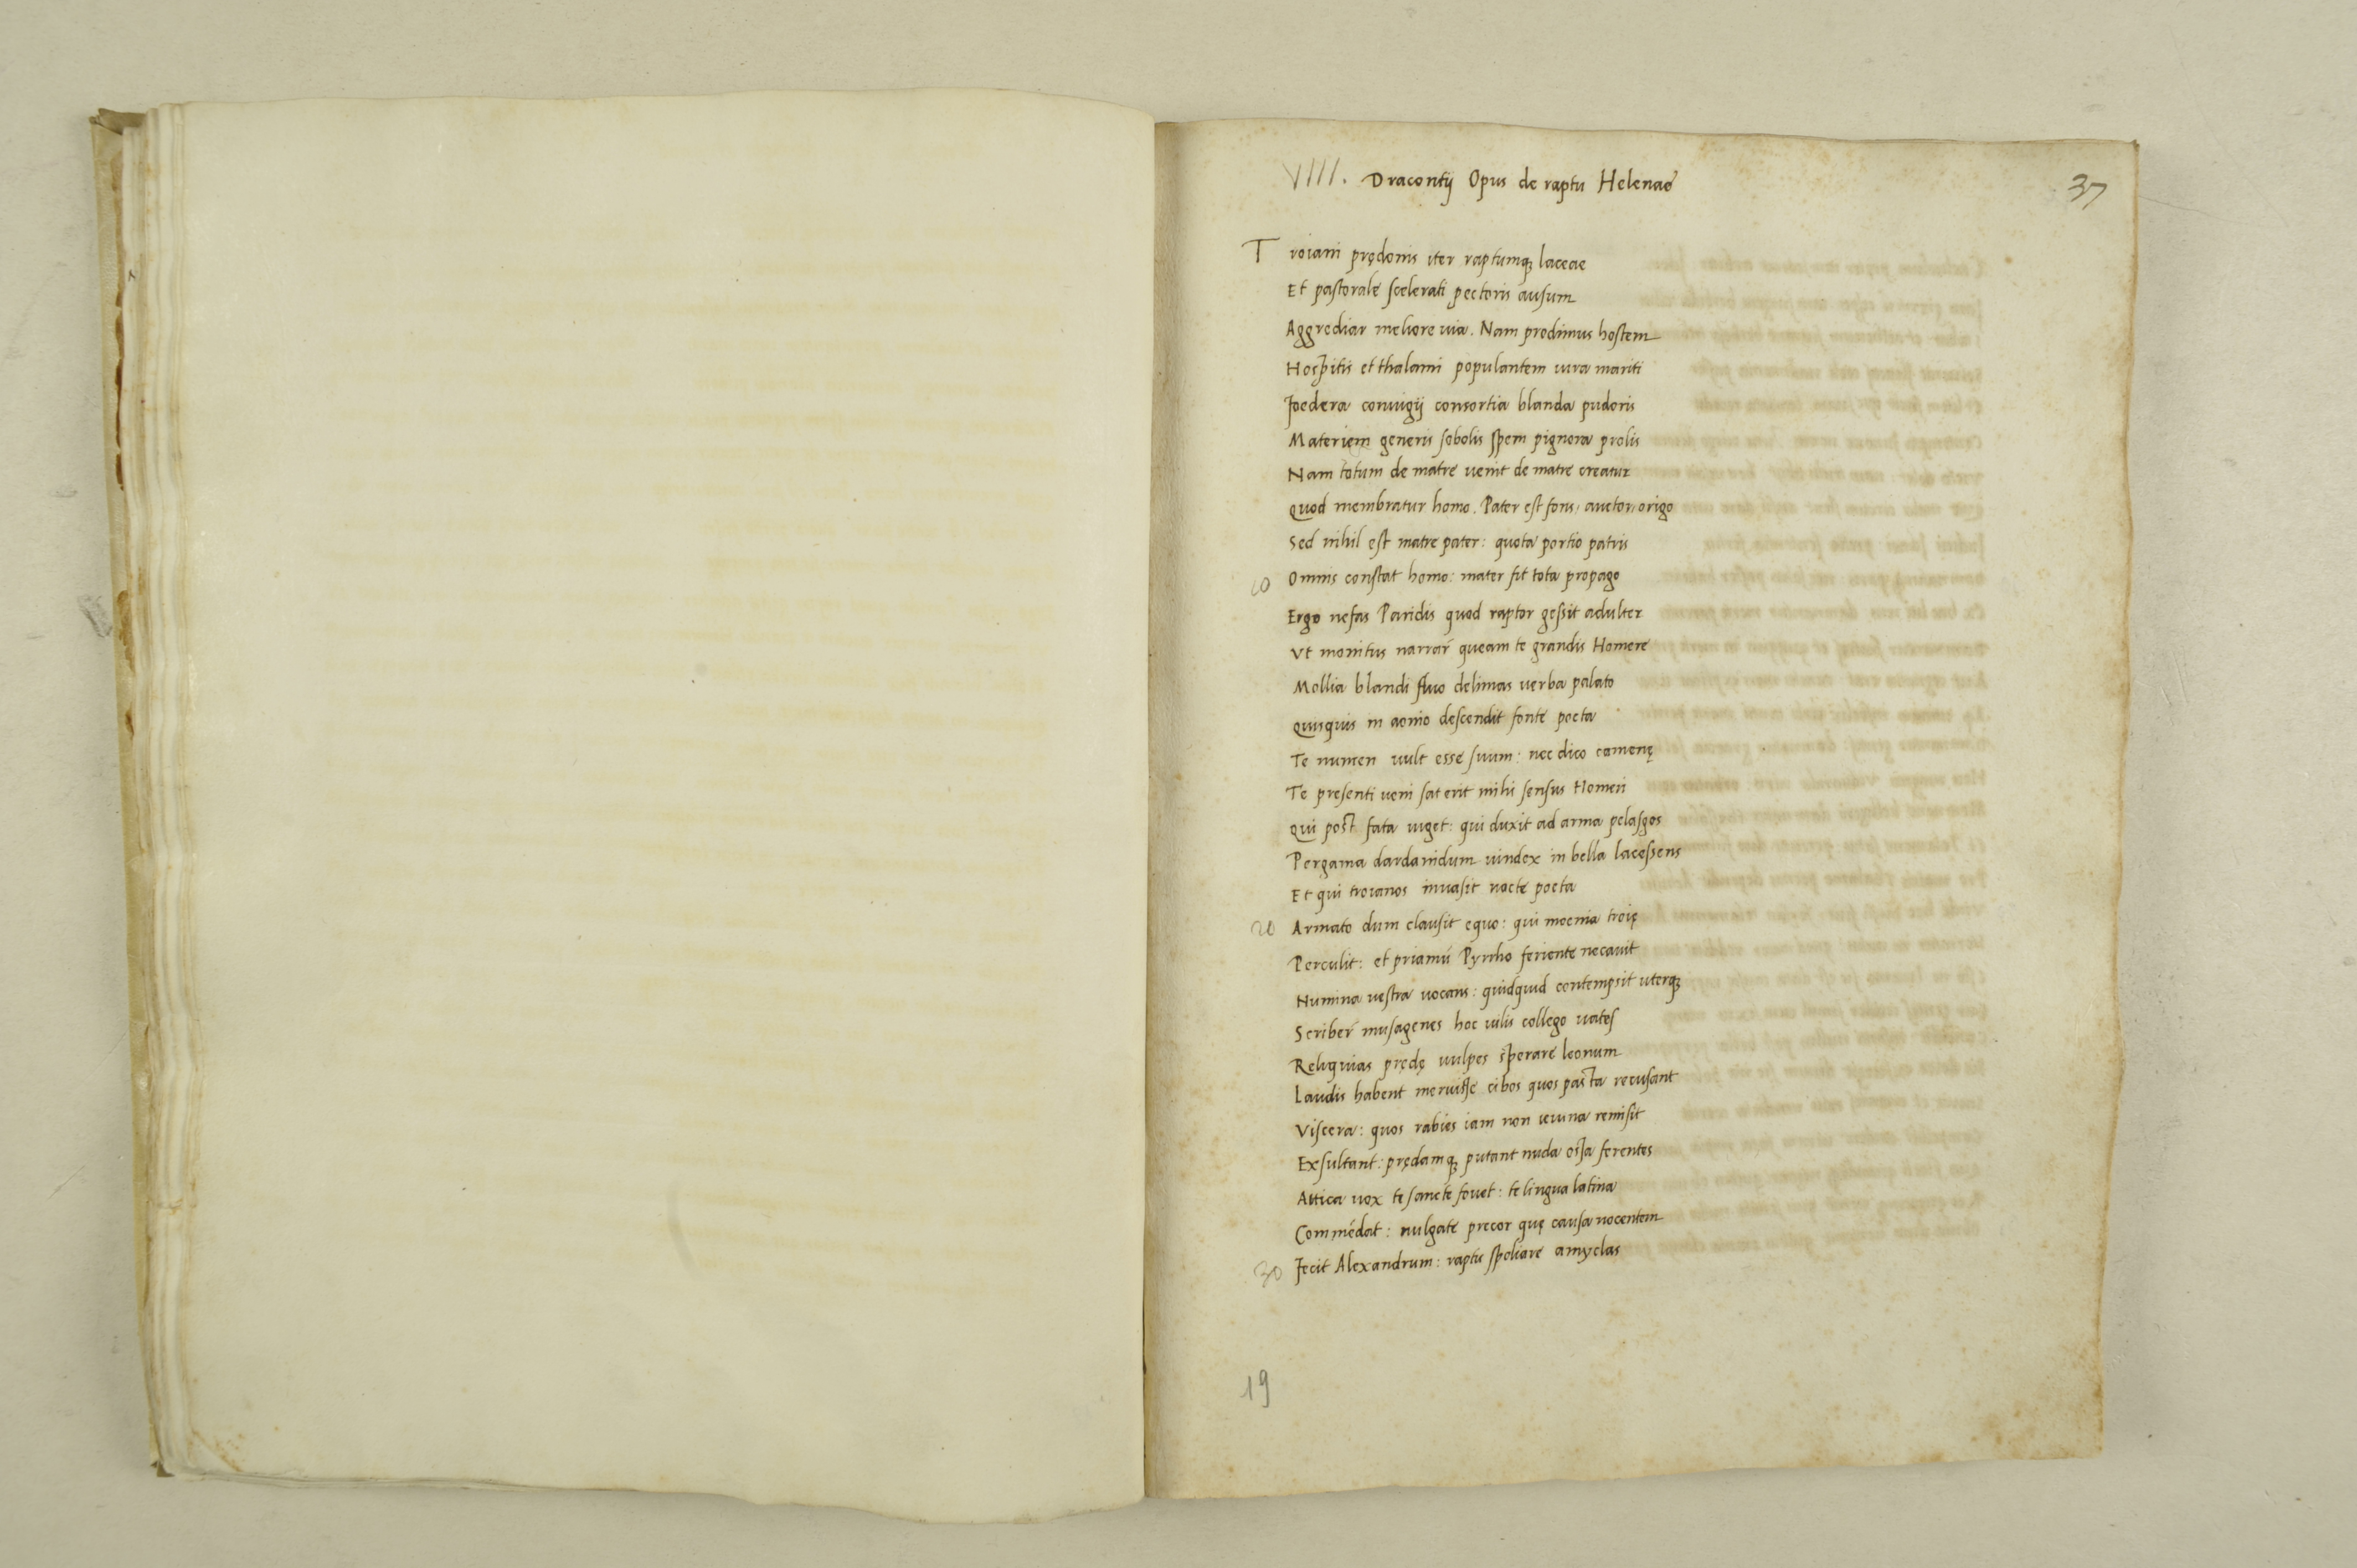 VIIII. Dracontij Opus de raptu Helenae
37
Troiani prędonis iter raptumqꝫ laceae
Et pastorale scelerati pectoris ausum
Aggrediar meliore uia. Nam prodimus hostem
Hospitis et thalami populantem iura mariti
Foedera coniugij consortia blanda pudoris
Materiem generis sobolis spem pignora prolis
Nam totum de matre uenit de matre creatur
Quod membratur homo. Pater est fons, auctor, origo
Sed nihil est matre pater: quota portio patris
10 Omnis constat homo: mater fit tota propago
Ergo nefas Paridis quod raptor gessit adulter
Vt monitus narrar̄ queam te grandis Homere
Mollia blandi fluo delimas uerba palato
Quisquis in aonio descendit fonte poeta
Te numen uult esse suum: nec dico camenę
Te presenti ueni sat erit mihi sensus Homeri
Qui post fata uiget: qui duxit ad arma pelasgos
Pergama dardanidum uindex in bella lacessens
Et qui troianos inuasit nocte poeta
20 Armato dum clausit equo: qui moenia troię
Perculit: et priamū Pyrrho feriente necauit
Numina uestra uocans: quidquid contempsit uterqꝫ
Scriber̄ musagenes hoc uilis collego uates
Reliquias prędę uulpes sperare leonum
Laudis habent meruisse cibos quos pasta recusant
Viscera: quos rabies iam non ieiuna remisit
Exsultant: prędamqꝫ putant nuda ossa ferentes
Attica uox te sancte fouet: te lingua latina
Commēdat: uulgate precor quę causa nocentem
30 Fecit Alexandrum: raptu spoliare amyclas
19